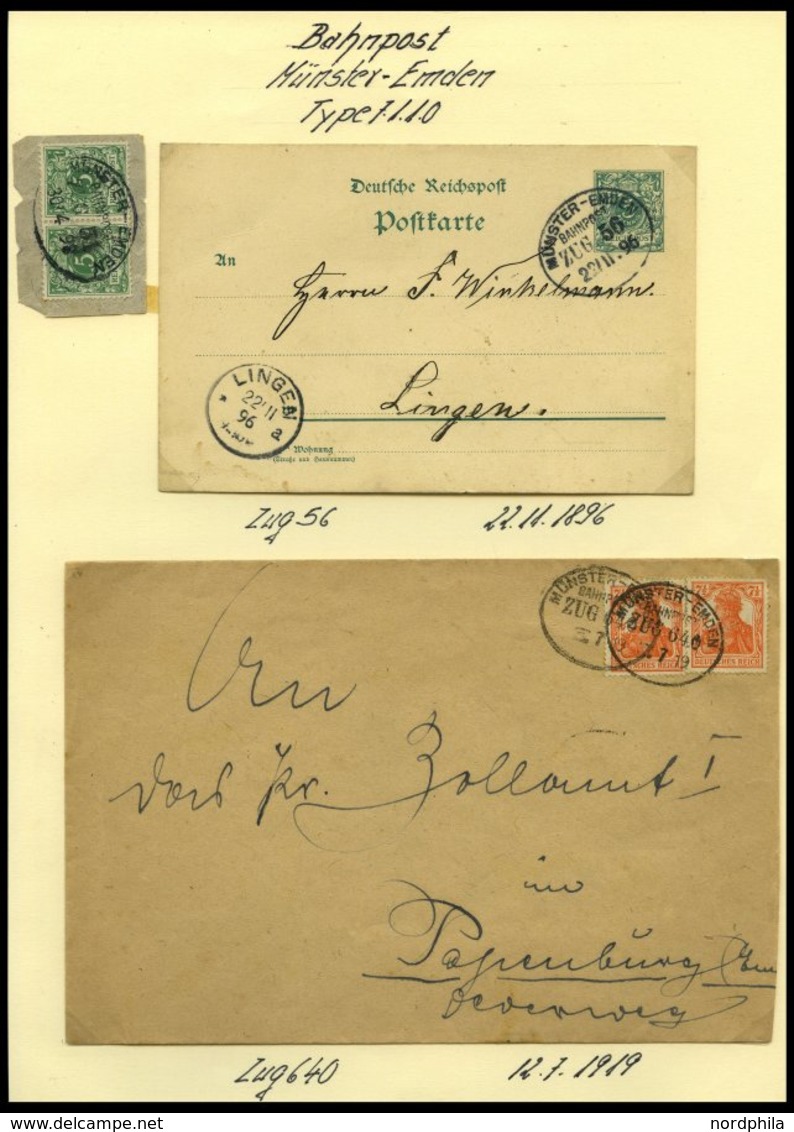 Bahnpost
Münster-Emden
Type 7.1.1.0
MÜNSTER-EMDEN
30 4 98
5
5
Deutsche Reichspost
Postkarte
MÜNSTER-EMDEN
BAHNPOST
ZUG 56
22/11.96
An
Herrn F. Winkelmann.
Lingen.
LINGEN
22/11
96
* a
Wohnung
(Straße und Hausnummer)
Zug 56 22.11.1896
MÜNSTER-
ZUG
7
MÜNSTER-EMDEN
BAHNPOST
ZUG 640
7 19
7½ 7½
DEUTSCHES REICH
DEUTSCHES REICH
An
das Pr. Zollamt I
in
Papenburg (Em
Deverweg
Zug 640 12.7.1919
www.nordphila.de
nordphila